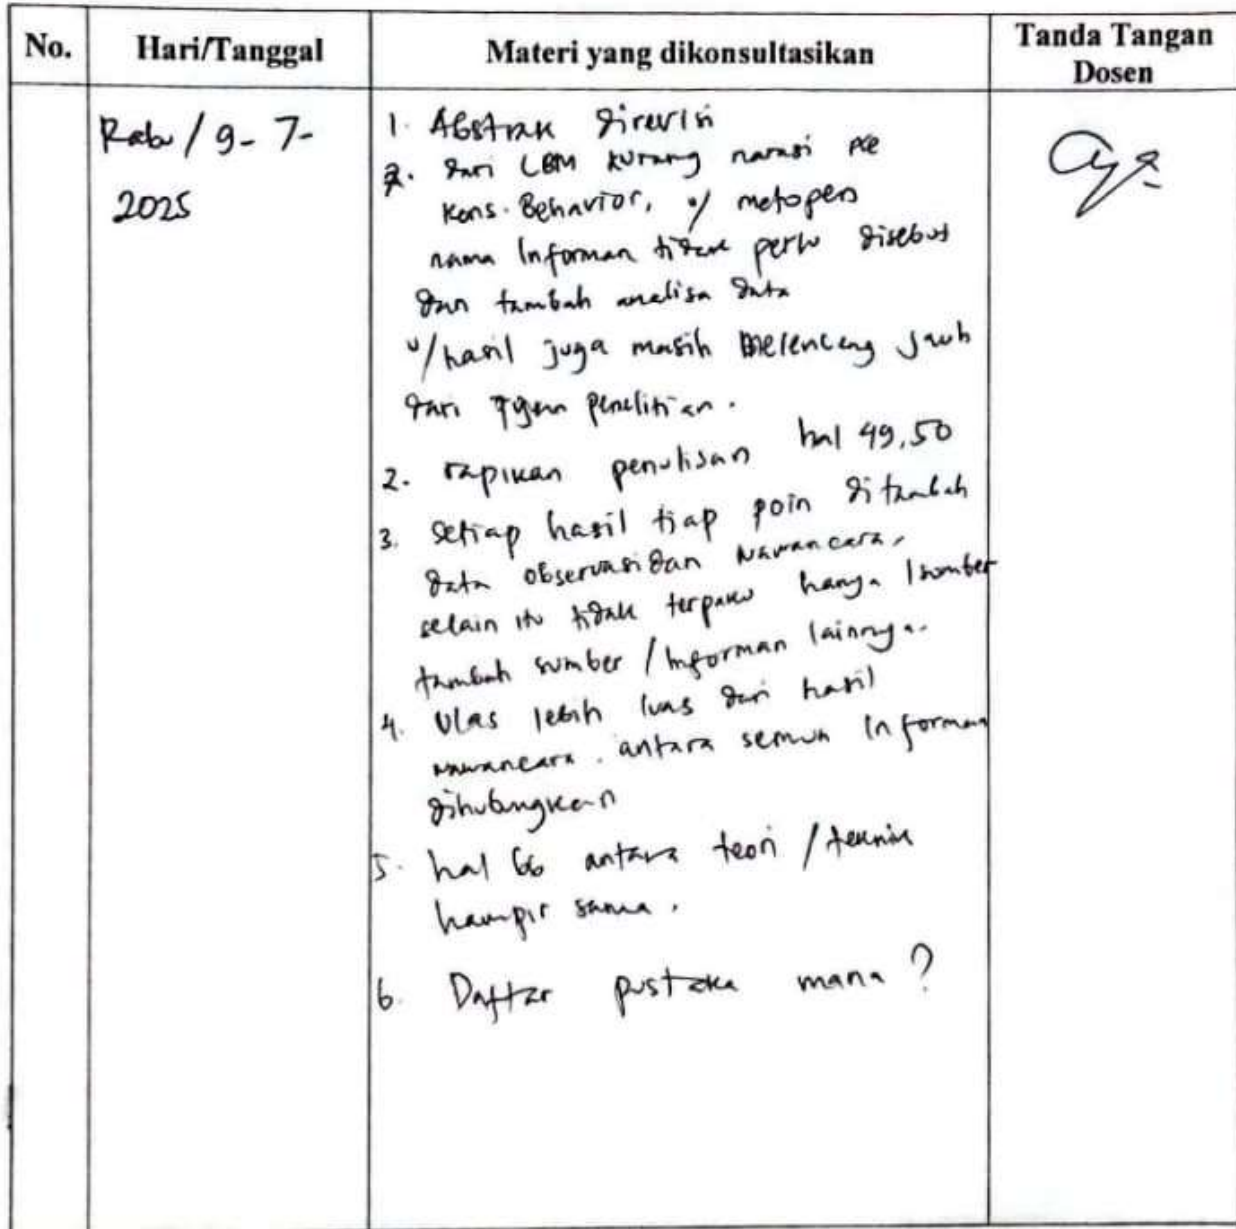 No.
Hari/Tanggal
Materi yang dikonsultasikan
Tanda Tangan
Dosen
Rabu / 9-7-
2025
1. Abstrak direvisi
2. dari LBM kurang narasi ke
Kons. Behavior, u/ metopen
nama Informan tidak perlu disebut
dan tambah analisa data
u/ hasil juga masih melenceng jauh
dari tujuan penelitian.
2. rapikan penulisan hal 49,50
3. setiap hasil tiap poin ditambah
data observasi dan wawancara,
selain itu tidak terpaku hanya 1 sumber
tambah sumber / Informan lainnya.
4. Ulas lebih luas dari hasil
wawancara. antara semua Informan
dihubungkan
5. hal 66 antara teori / teknik
hampir sama.
6. Daftar pustaka mana ?